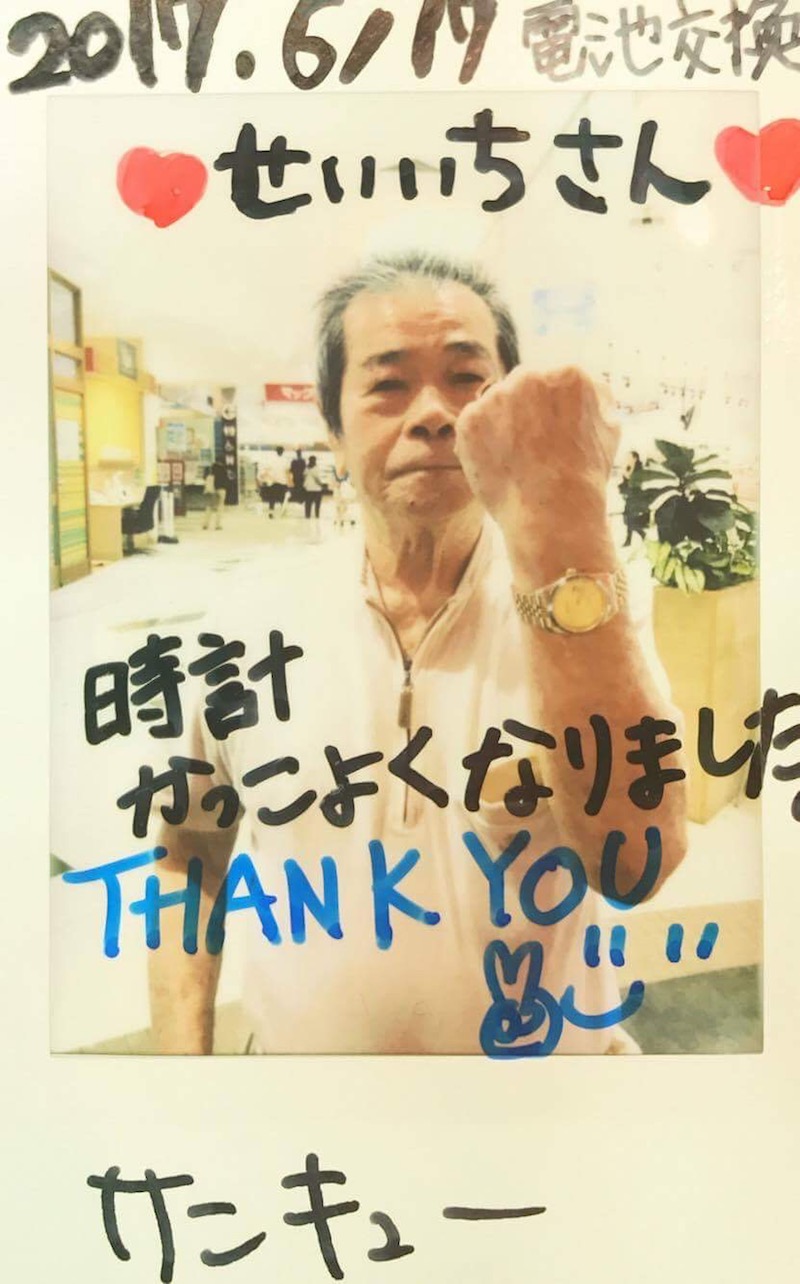 2017.6/17 電池交換
せいいちさん
マック
時計
かっこよくなりました。
THANK YOU
サンキュー